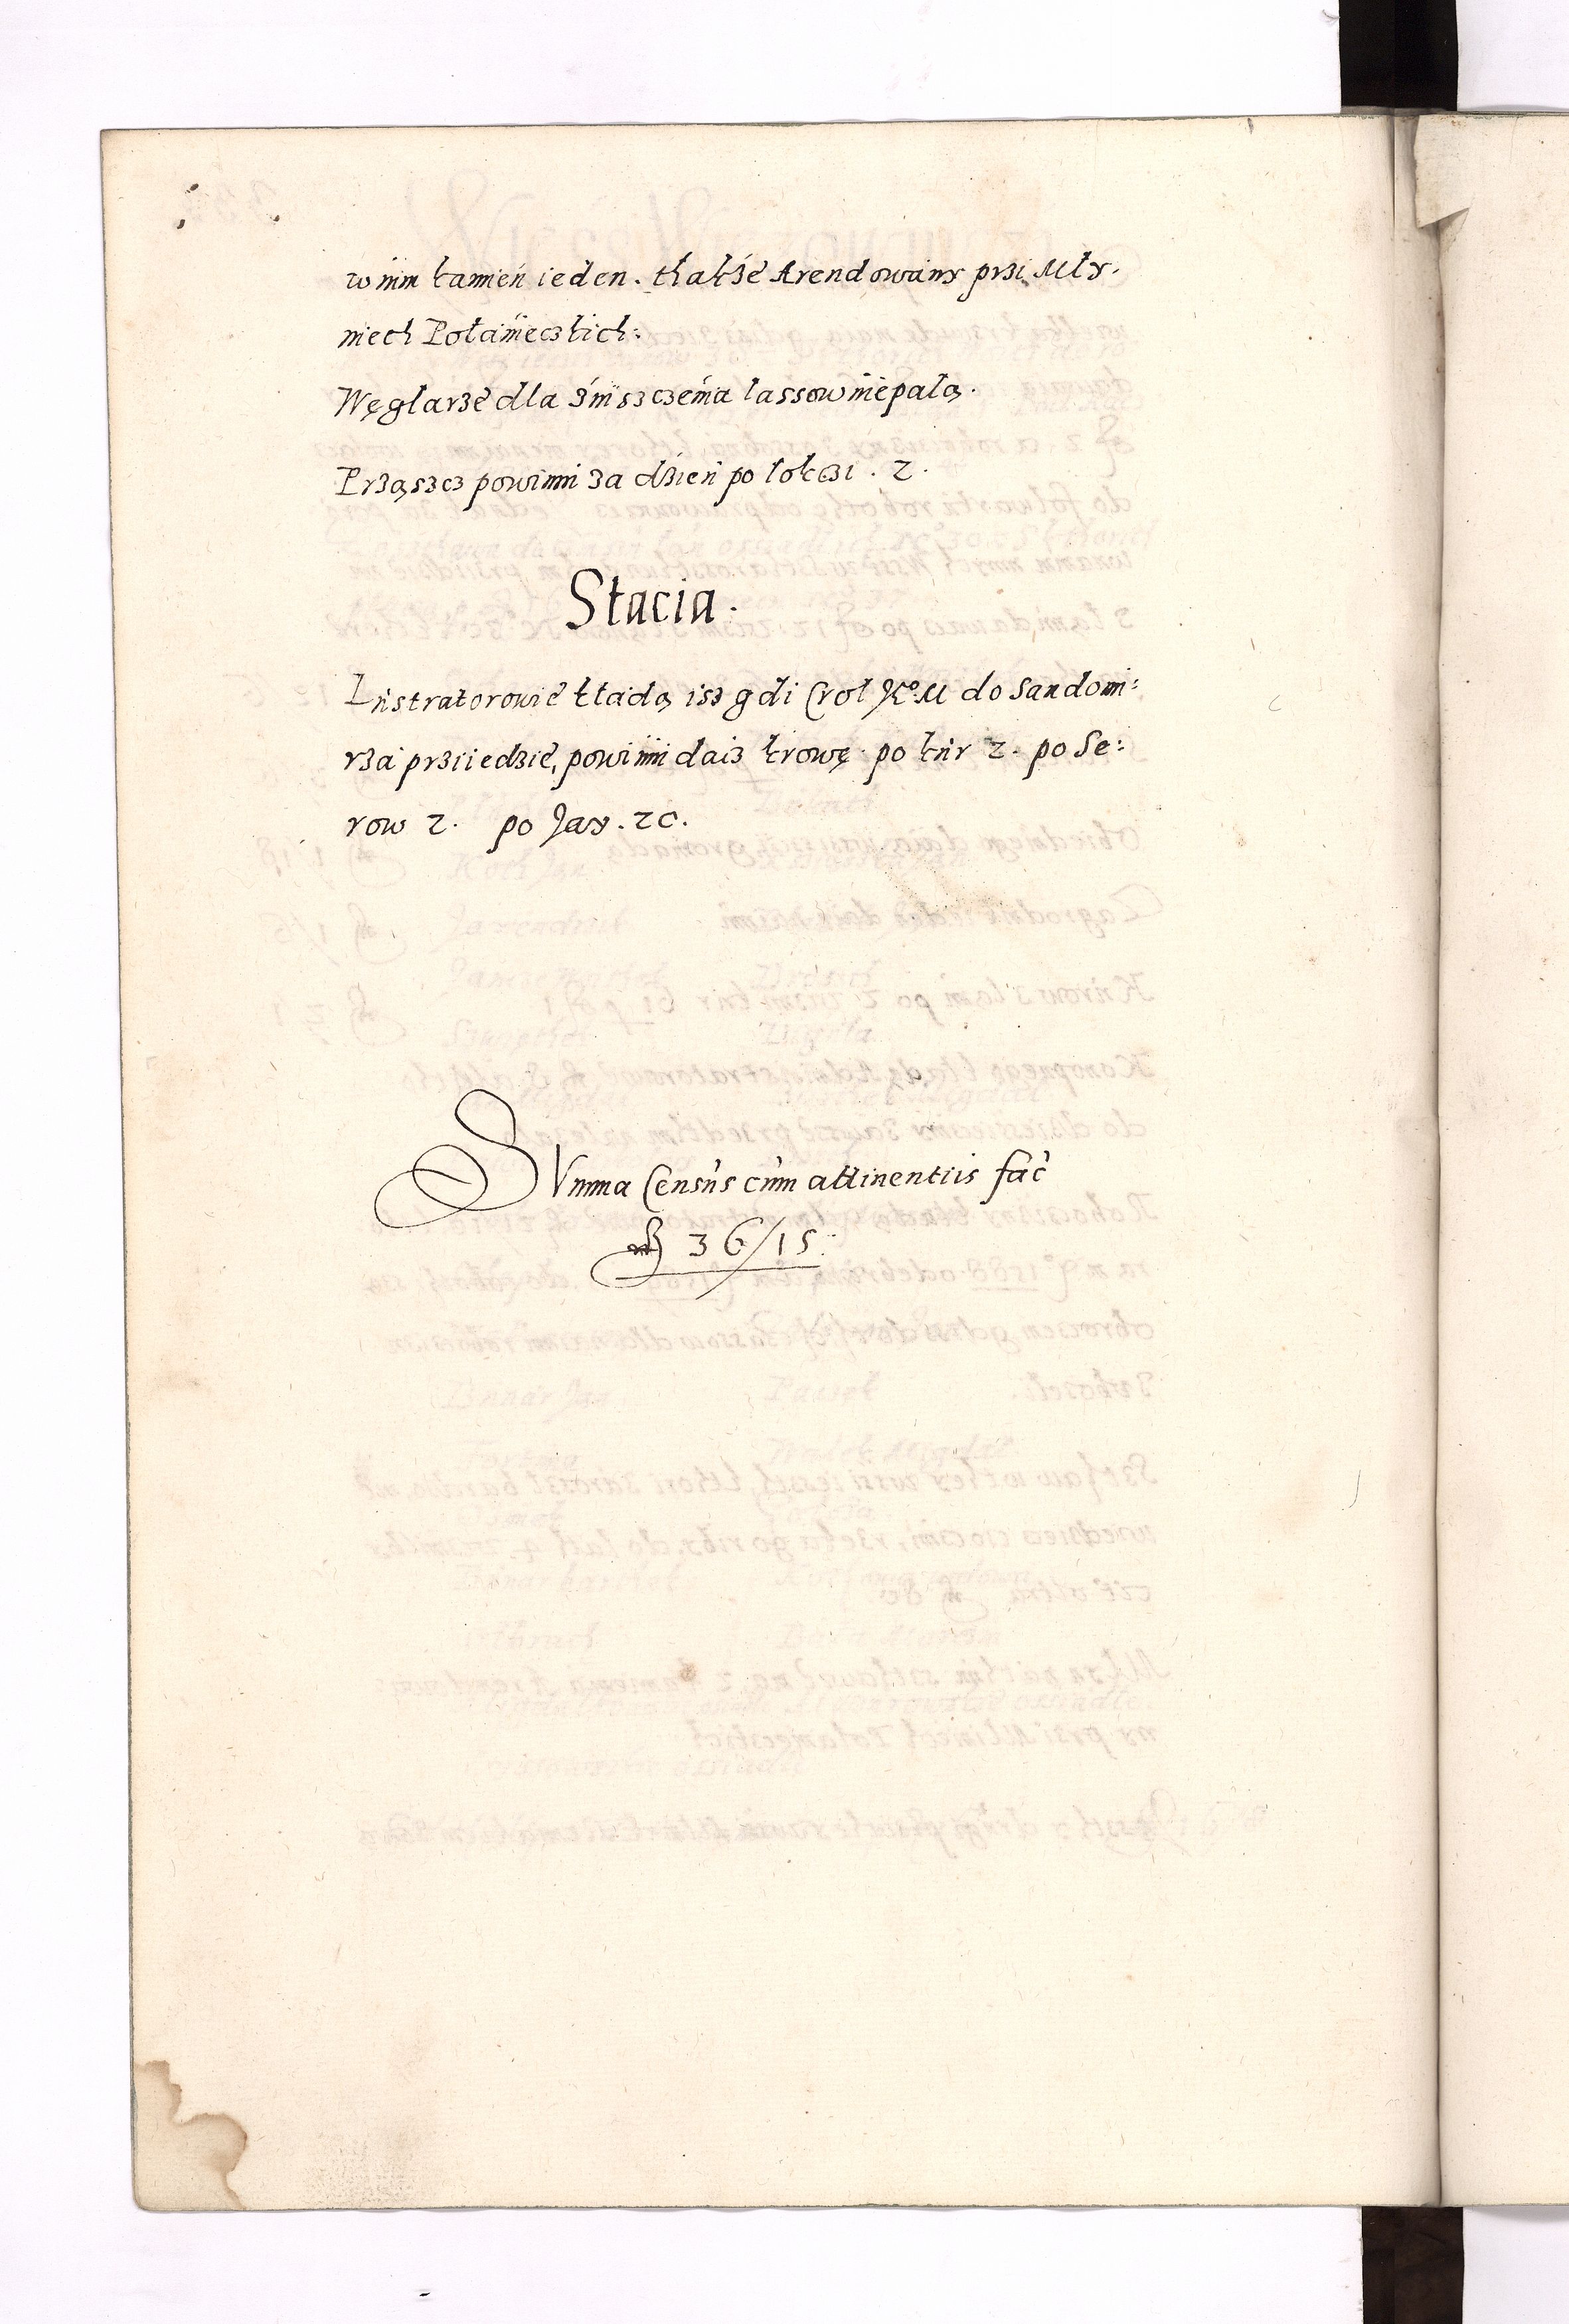 w nim kamien ieden. thakze Arendowany przi Mły-
niech Połanieczkich:
Węglarze dla zniszczenia lassow niepalą.
Prząszcz powinni za dzien po lokczi . 2 .
Stacia.
Lustratorowie kładą isz gdi Crol Jeo M do Sandomi:
rza przijedzie, powinni daiz krowę po kur 2. po Se:
row 2. po Jay. 20.
SVmma Census cum attinentiis fac
36/15.